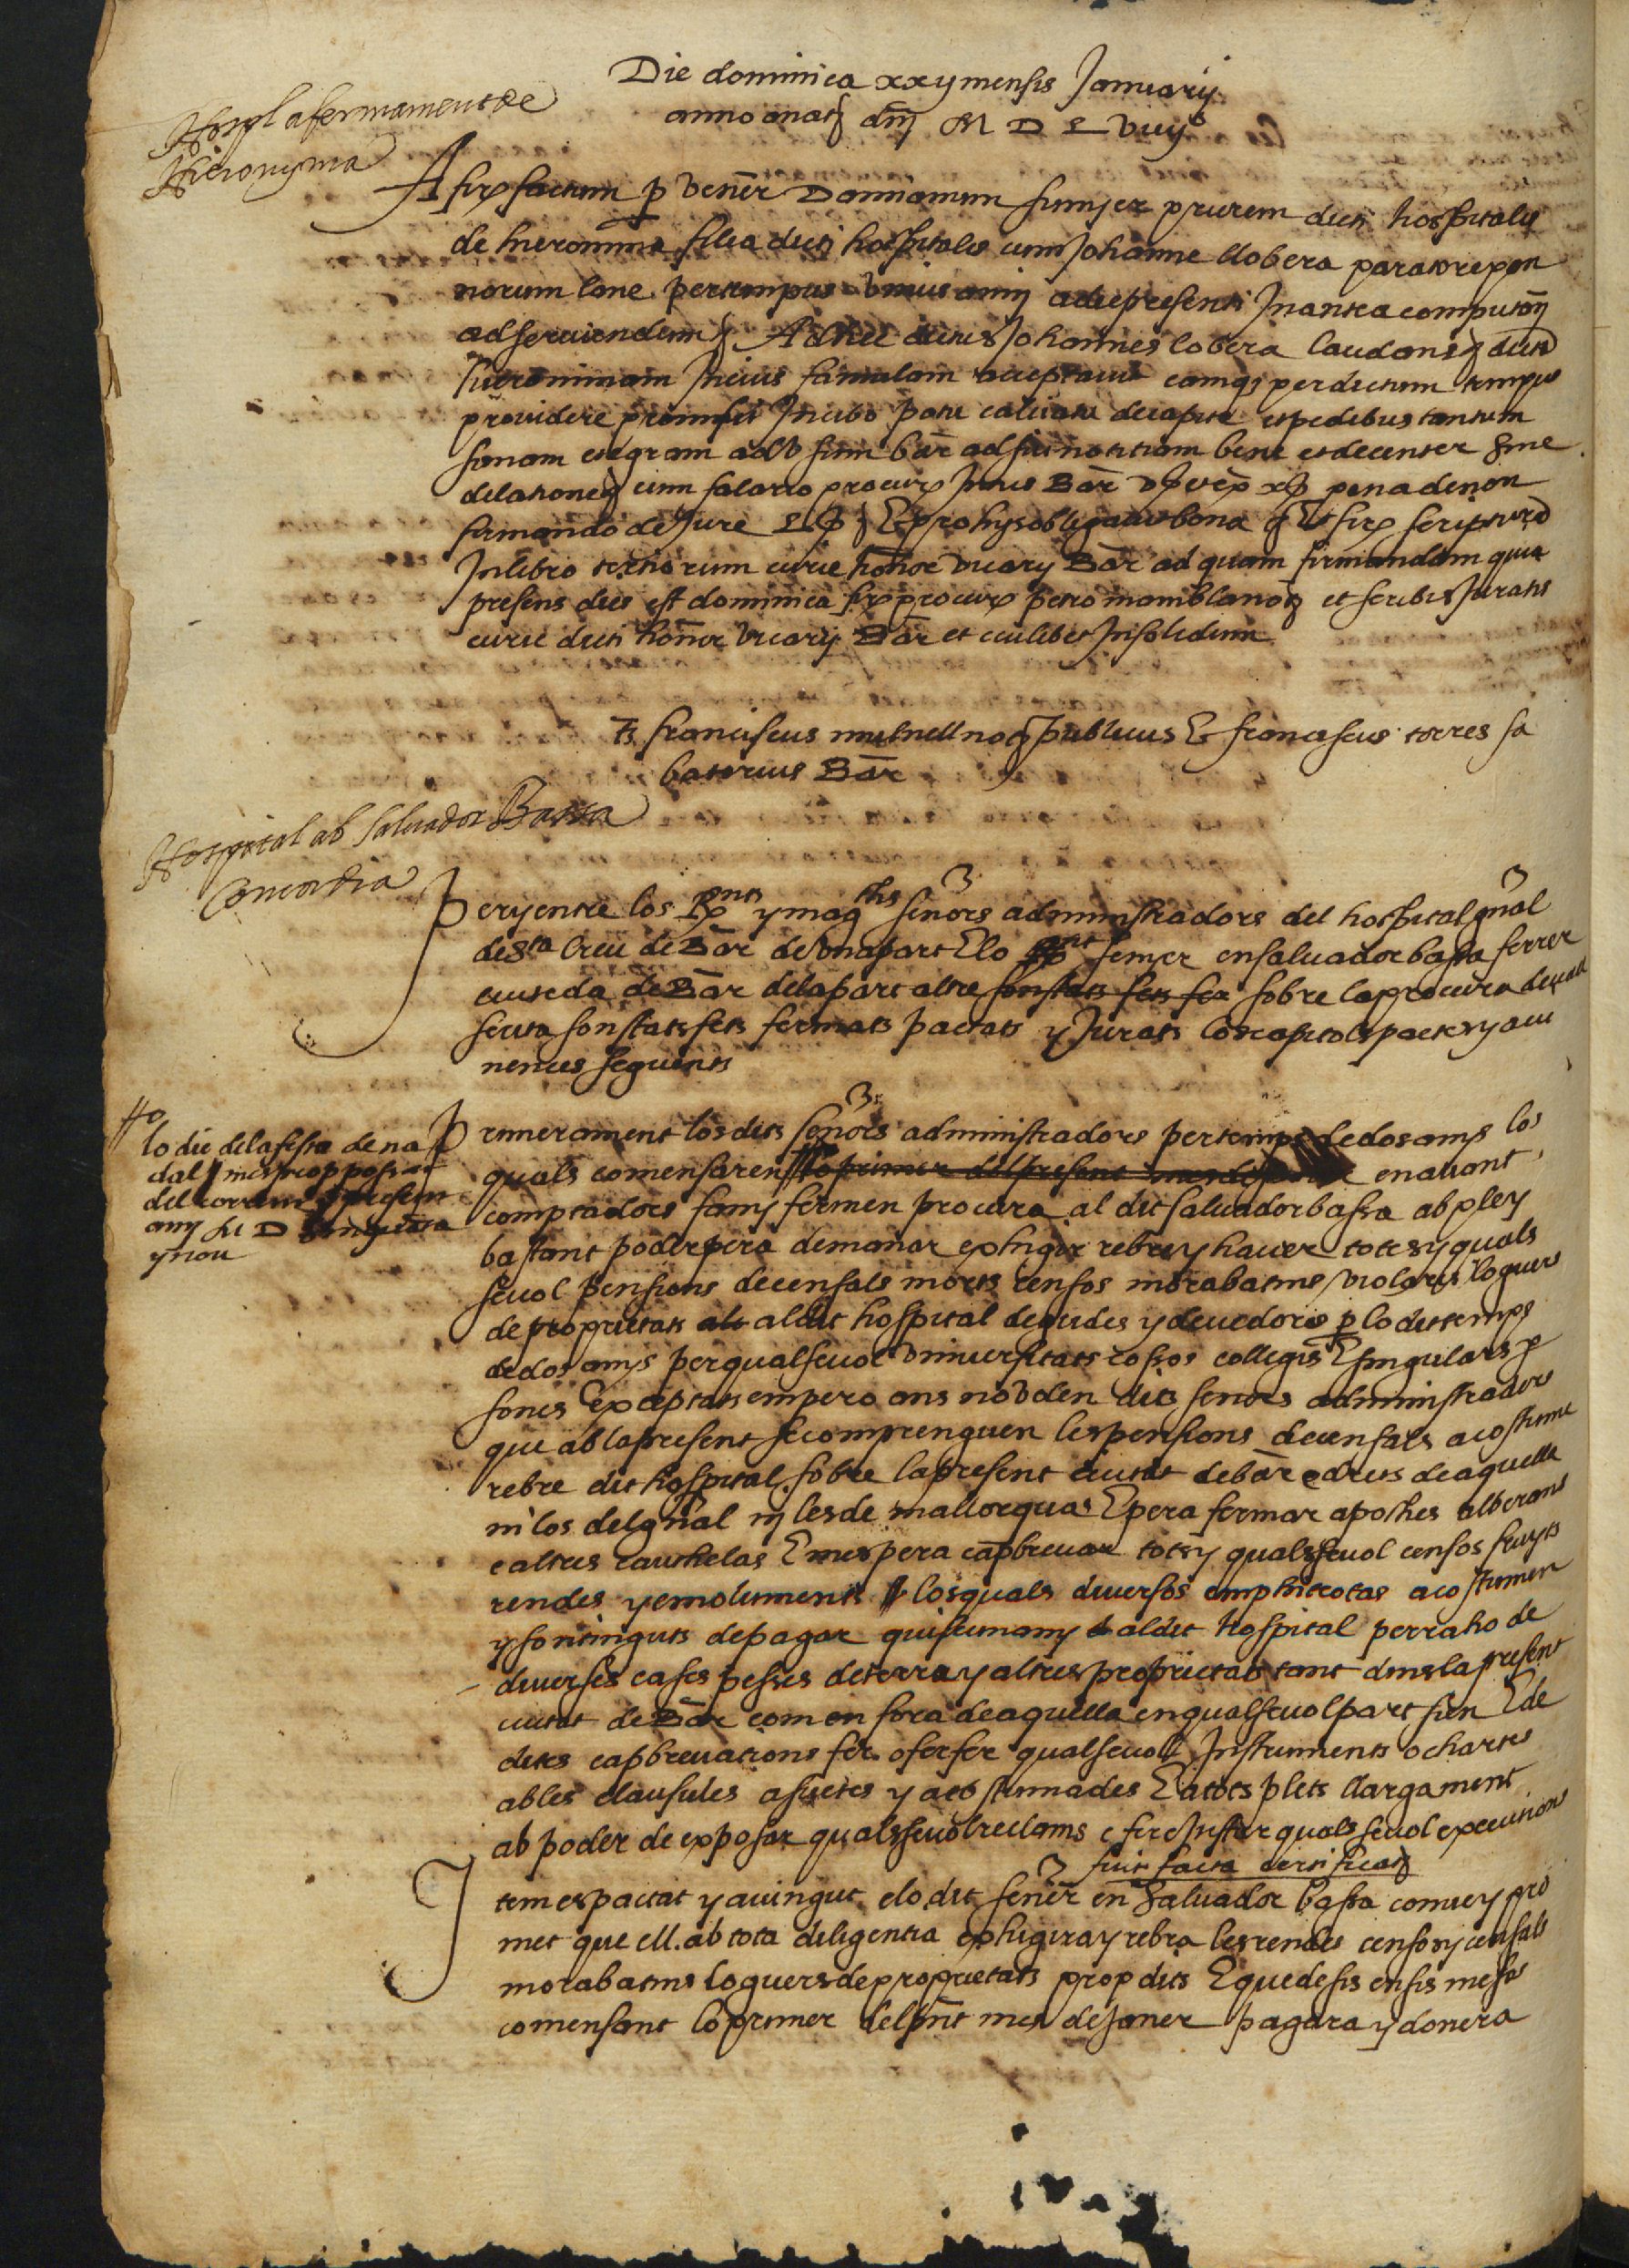 Die dominica xxij mensis Januarij
anno a nat dñj M D L viiijº
Hospl afermament de
Hieronyma
Afirx factum p vener Damianum sunyer priorem dicti hospitalis
de hieronima filia dicti hospitalis cum Johanne llobera paratore pan
norum lane per tempus unius anni a die presenti In antea computan
ad serviendum Ad hec dictus Johannes lobera laudans dicta
hieronimam In eius famulam acceptavit eamq per dictum tempus
providere promisit In cibo potu calciatu de capite et pedibus tantum
sanam et egram ad usum bar ad sui notitiam bene et decenter sine
dilatione cum salario procur Intus Bar pena de non
firmando de Jure Et pro his obligavit bona Et firx script
In libro tertiorum curie honor vicarij Bar ad quam firmandam quia
presens dies est dominica procur petro momblanot et scribis Juratis
curie dicti honor vicarij Bar et cuilibet In solidum
Ts franciscus mulnell not publicus E franciscus torres sa
baterius Bar
Hospital ab Salvador Bassa
Concordia
Per y entre los Rnts y magchs senors administradors del hospital gñal
de Sta Creu de Bar de una part E lo senyer en salvador bassa ferrer
ciuteda de Bar de la part altre sonstats fets fer sobre la procura deuall
scrita son stats fets fermats pactats y Jurats los capitols pactes y aui
nencies seguents
Primerament los dits senors administradors per temps de dos anys los
quals comensaren lo primer del present mes de en auant
Ho
lo die de la festa de na
dal mes prop passat
del corrent y present
any M D sinquanta
y nou
comptadors fan y fermen procura al dit salvador bassa ab ple y
bastant poder pera demanar exhigir rebre y hauer totes y quals
seuol pensions de censals morts censos morabatins violaris loguers
de proprietats als al dit hospital degudes y deuedores p lo dit temps
de dos anys per qualseuol universitats cossos collegis E singulars p
sones Exceptats empero ans no volen dits senors administradors
que ab la present se comprenguen les pensions de censals acostume
rebre dit hospital sobre la present ciutat de bar e drets de aquella
ni los del gñal ni les de mallorquas E pera fermar apoches alberans
e altres cauthelas E mes pera capbreuar tots y qualsseuol censos fruyts
rendes y emoluments los quals diuersos emphiteotas acostumen
y son tinguts de pagar quiscun any al dit hospital per raho de
diuerses cases pesses de terra y altres proprietats tant dins la present
ciutat de Bar com en fora de aquella en qualseuol part sien E de
dites capbreuations fer o fer fer qualseuol Instruments o chartes
ab les clausules asuetes y acostumades E a tots plets llargament
ab poder de exposar qualsseuol reclams e fer e Instar quals seuol executions
fuit facta certificat
Item es pactat y auingut e lo dit sener en Salvador bassa conve y pro
met que ell ab tota diligentia exhigira y rebra les rendes censos y censals
morabatins loguers de proprietats prop dits E que de sis en sis mesos
comensant lo primer del pnt mes de Janer pagara y donera